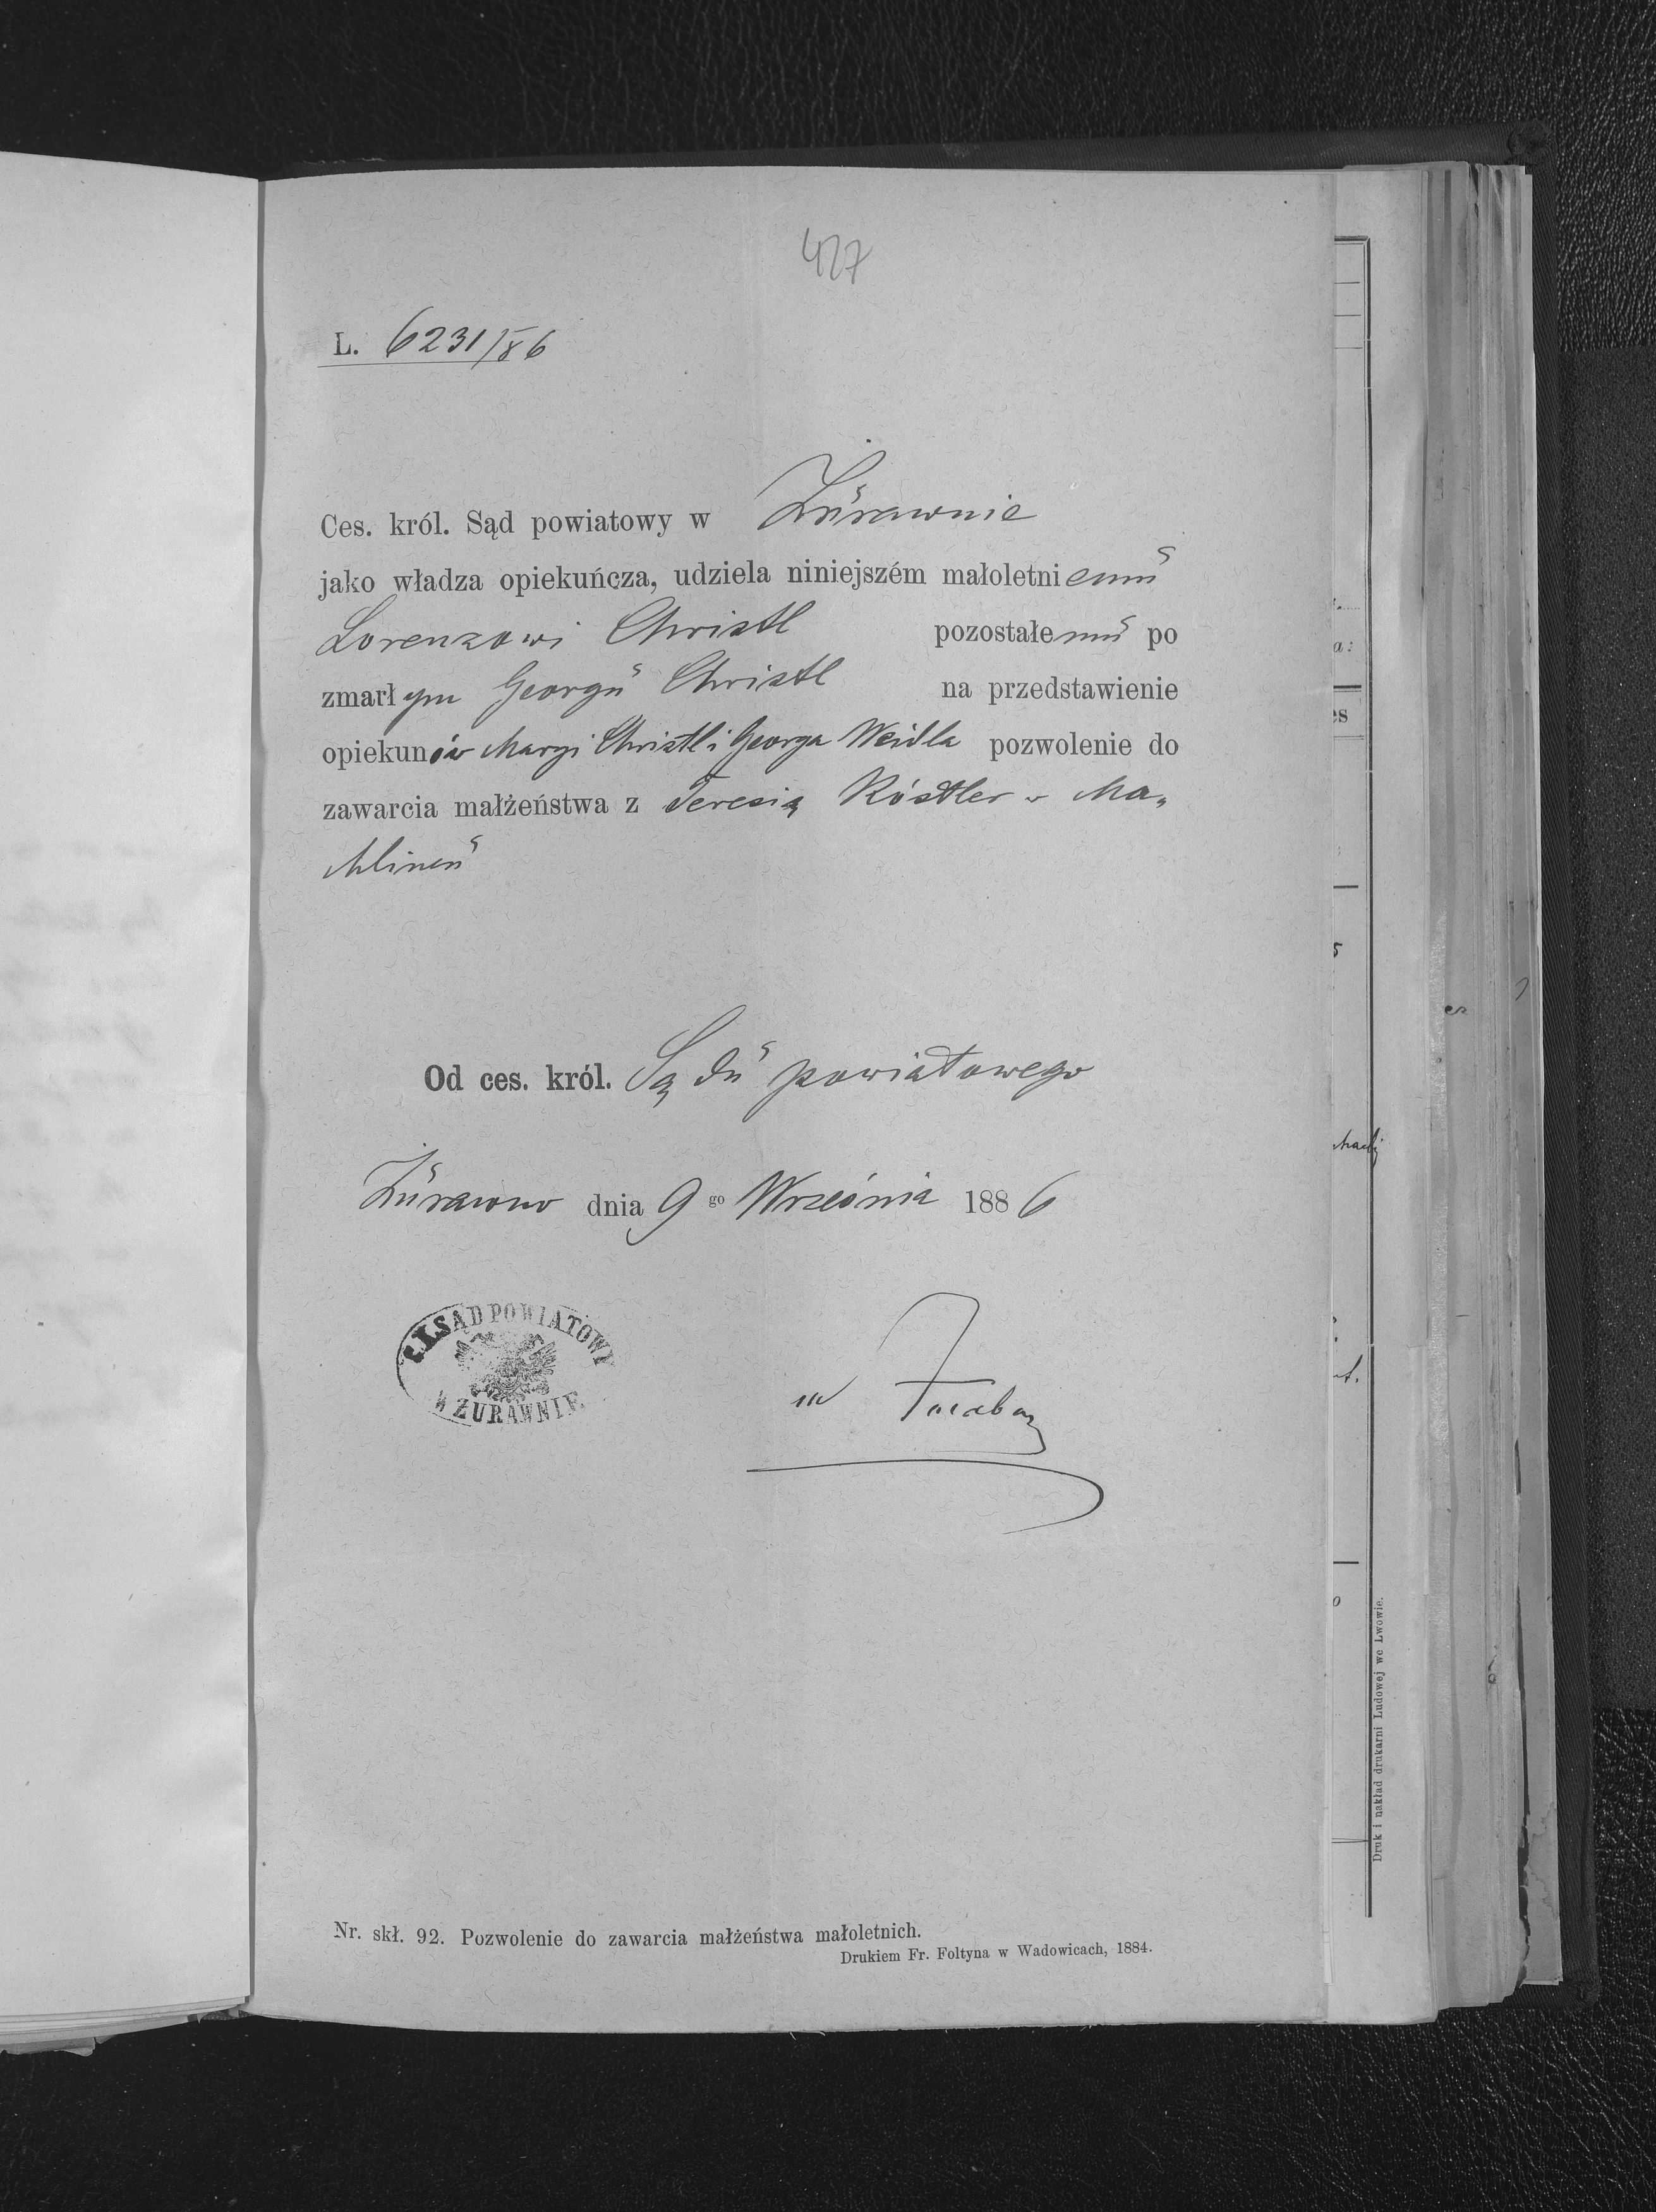 427
L. 6231/86
Ces. król. Sąd powiatowy w Żurawnie
jako władza opiekuńcza, udziela niniejszém małoletniemu
Lorenzowi Christl pozostałemu po
zmarłym Georgu Christl na przedstawienie
opiekunów Margi Christl i Georga Weidla pozwolenie do
zawarcia małżeństwa z Teresią Röstler w Ma„
chlincu
Od ces. król. Sądu powiatowego
Żurawno dnia 9 go Września 1886
C.K. SĄD POWIATOWY
W ŻURAWNIE
Nr. skł. 92. Pozwolenie do zawarcia małżeństwa małoletnich.
Drukiem Fr. Foltyna w Wadowicach, 1884.
Druk i nakład drukarni Ludowej we Lwowie.